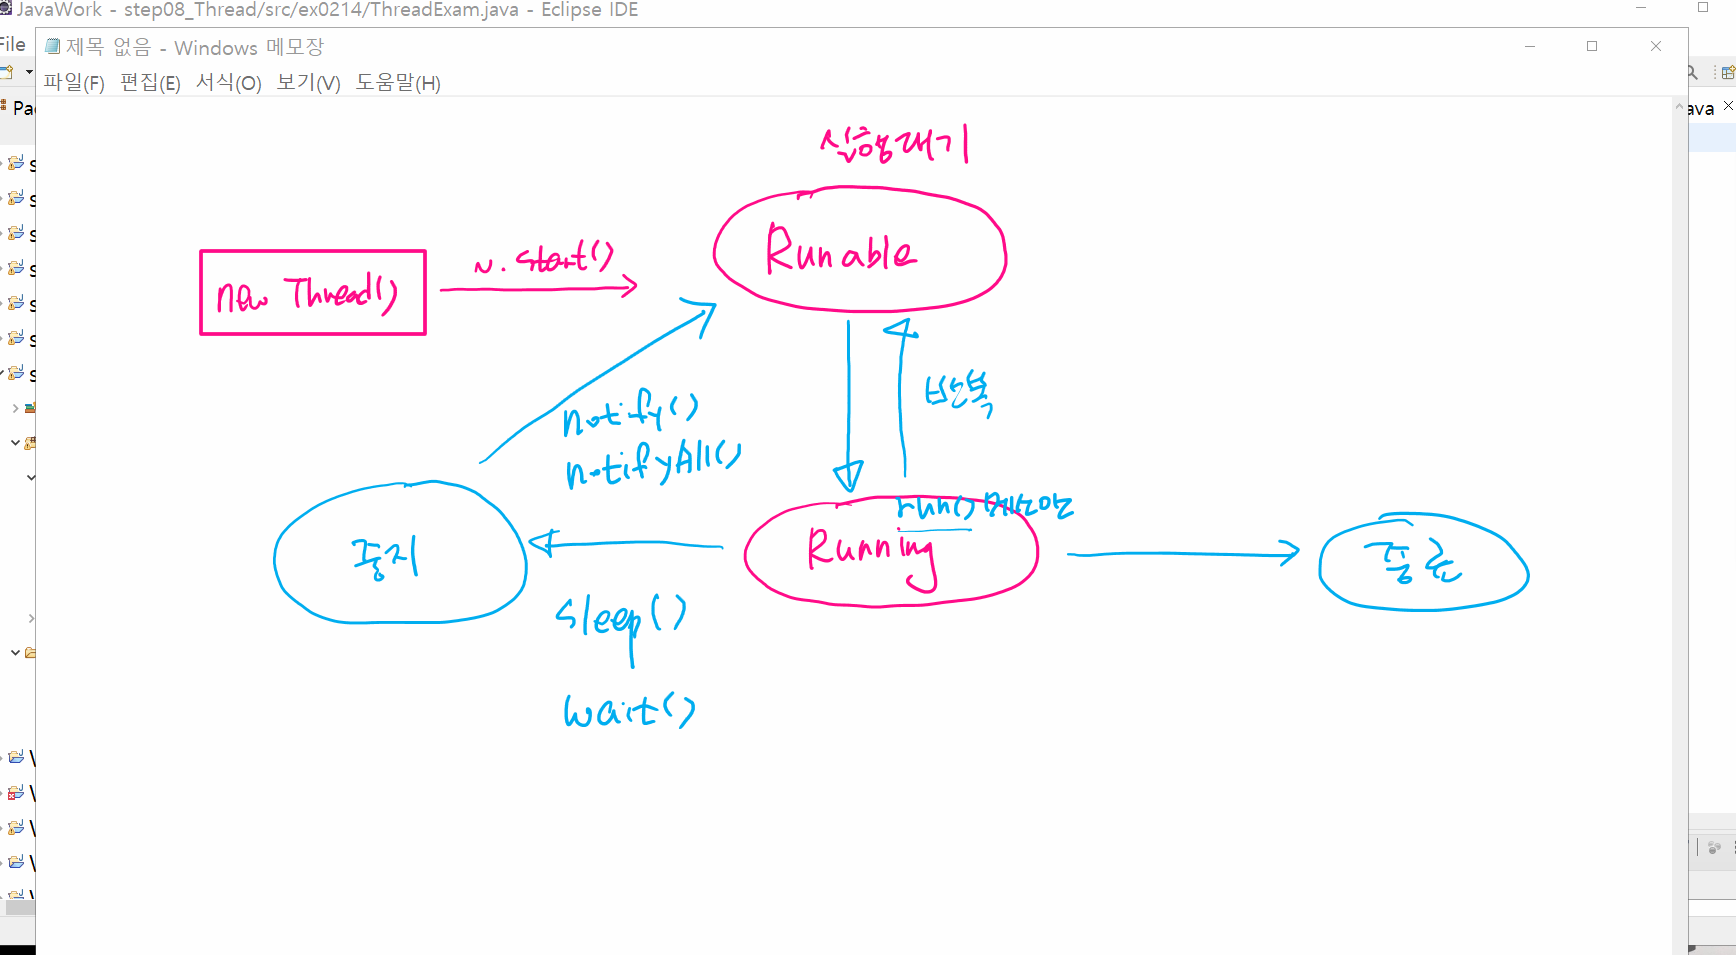 JavaWork - step08_Thread/src/ex0214/ThreadExam.java - Eclipse IDE
File
제목 없음 - Windows 메모장
파일(F) 편집(E) 서식(O) 보기(V) 도움말(H)
Pa
ava
실행대기
Runable
n. start()
new Thread()
반복
notify()
notifyAll()
run() 메소드
Running
중지
종료
sleep()
wait()